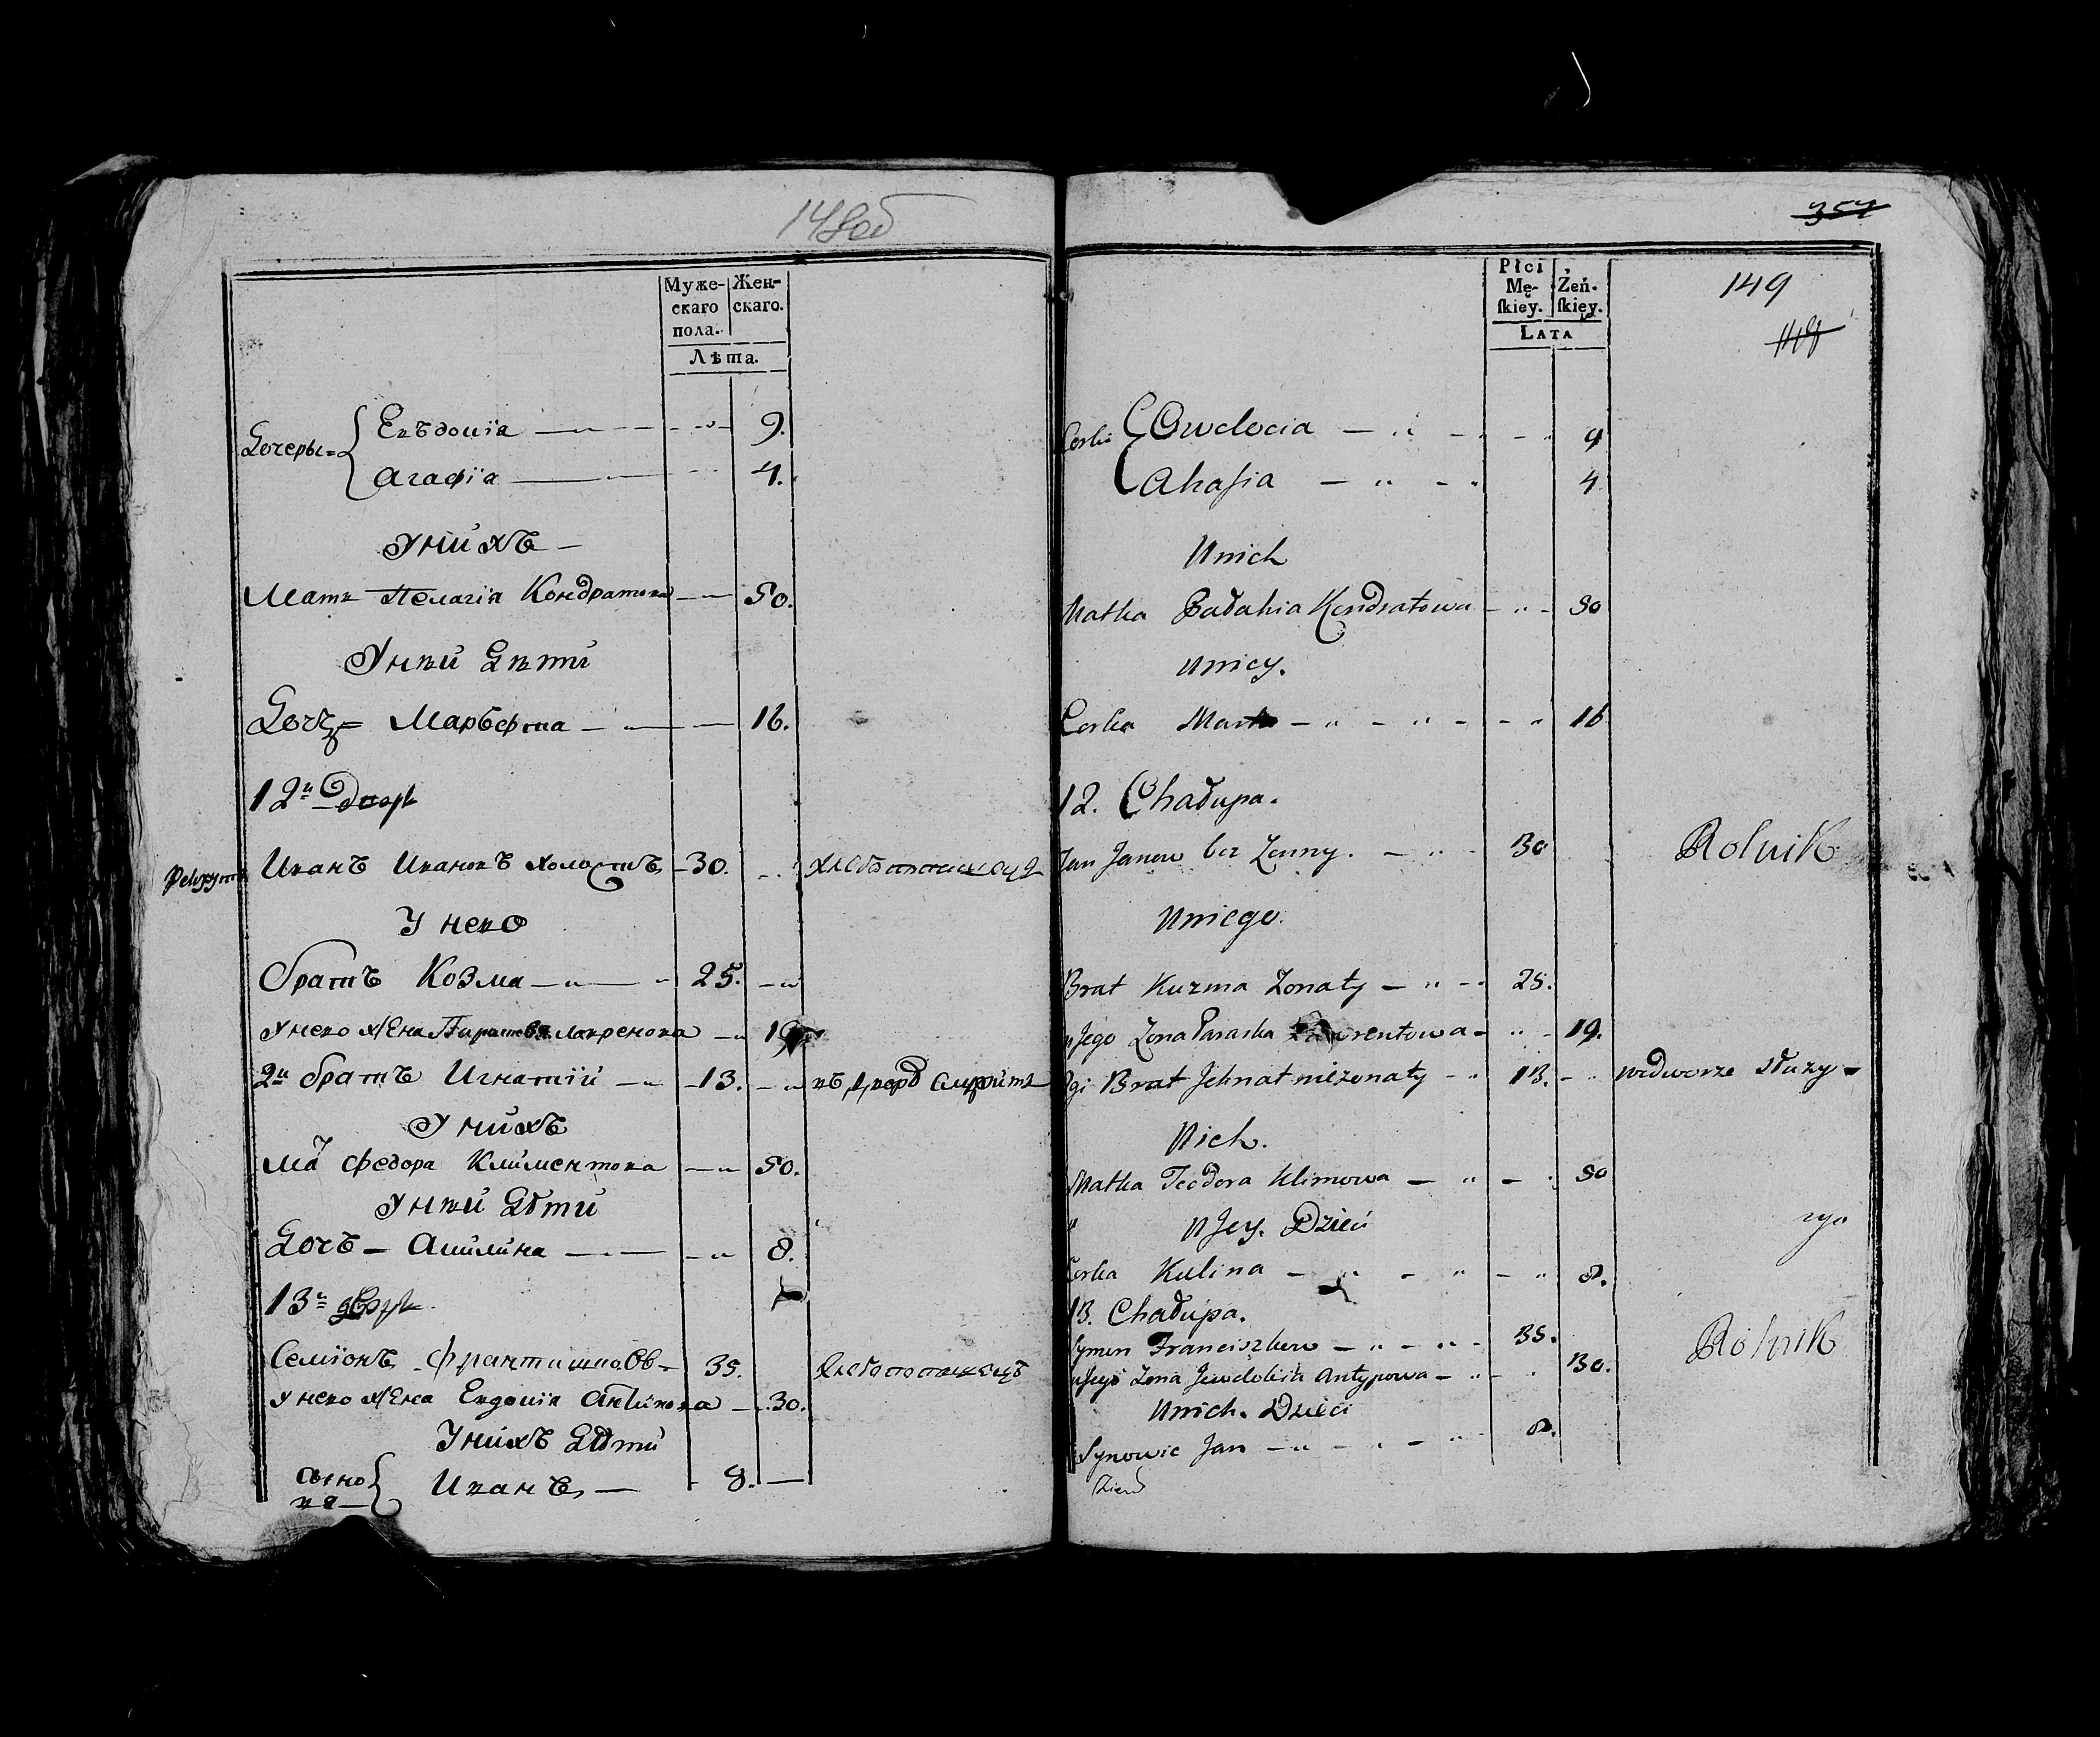 148об
Муже-
скаго
пола.
Жен-
скаго.
Лѣта.
Дочеры= Евъдокія 9.
Агафія 4.
У нихъ
Мать Пелагія Кондратова 50.
У ней Дѣти
Дочь= Маръфта 16.
12й Дворъ
Рекрутъ Иванъ Ивановъ холостъ 30. хлебопашецъ
У него
братъ Козма 25.
У него жена Параскева лавренова 19
2й братъ Игнатій 13. въ дворѣ служитъ
У нихъ
Ма Федора Климентова 50.
У ней Дѣти
Дочъ Акилина 8.
13й дворъ
Семіонъ Франтишковъ 35. Хлебопашецъ
У него жена Евдокія Антипова 30.
У нихъ Дѣти
сыно
вя Иванъ 8.
357
149
Płci
Mę-
ſkiey.
Żeń-
ſkiey.
LATA
Corki Owdocia 9
Ahafia 4
Unich
Matka Pałahia Kondratowa 50
Unicy.
Corka Marta 16
12. Chałupa.
Jan Janow bez Zenny. 30 Rolnik
Uniego.
Brat Kuzma Zonaty 25.
u Jego Zona Paraska Lawrentowa 19.
2gi Brat Jehnat niezonaty 13. wdworze służy
Nich.
Matka Teodora Klimowa 50
u Jey. Dzieci
Corka Kulina 8.
13. Chałupa.
Symon Franciszkow 35. Rolnik
u Jego Zona Jewdokia Antypowa 30.
Unich. Dzieci
Synowie Jan 8.